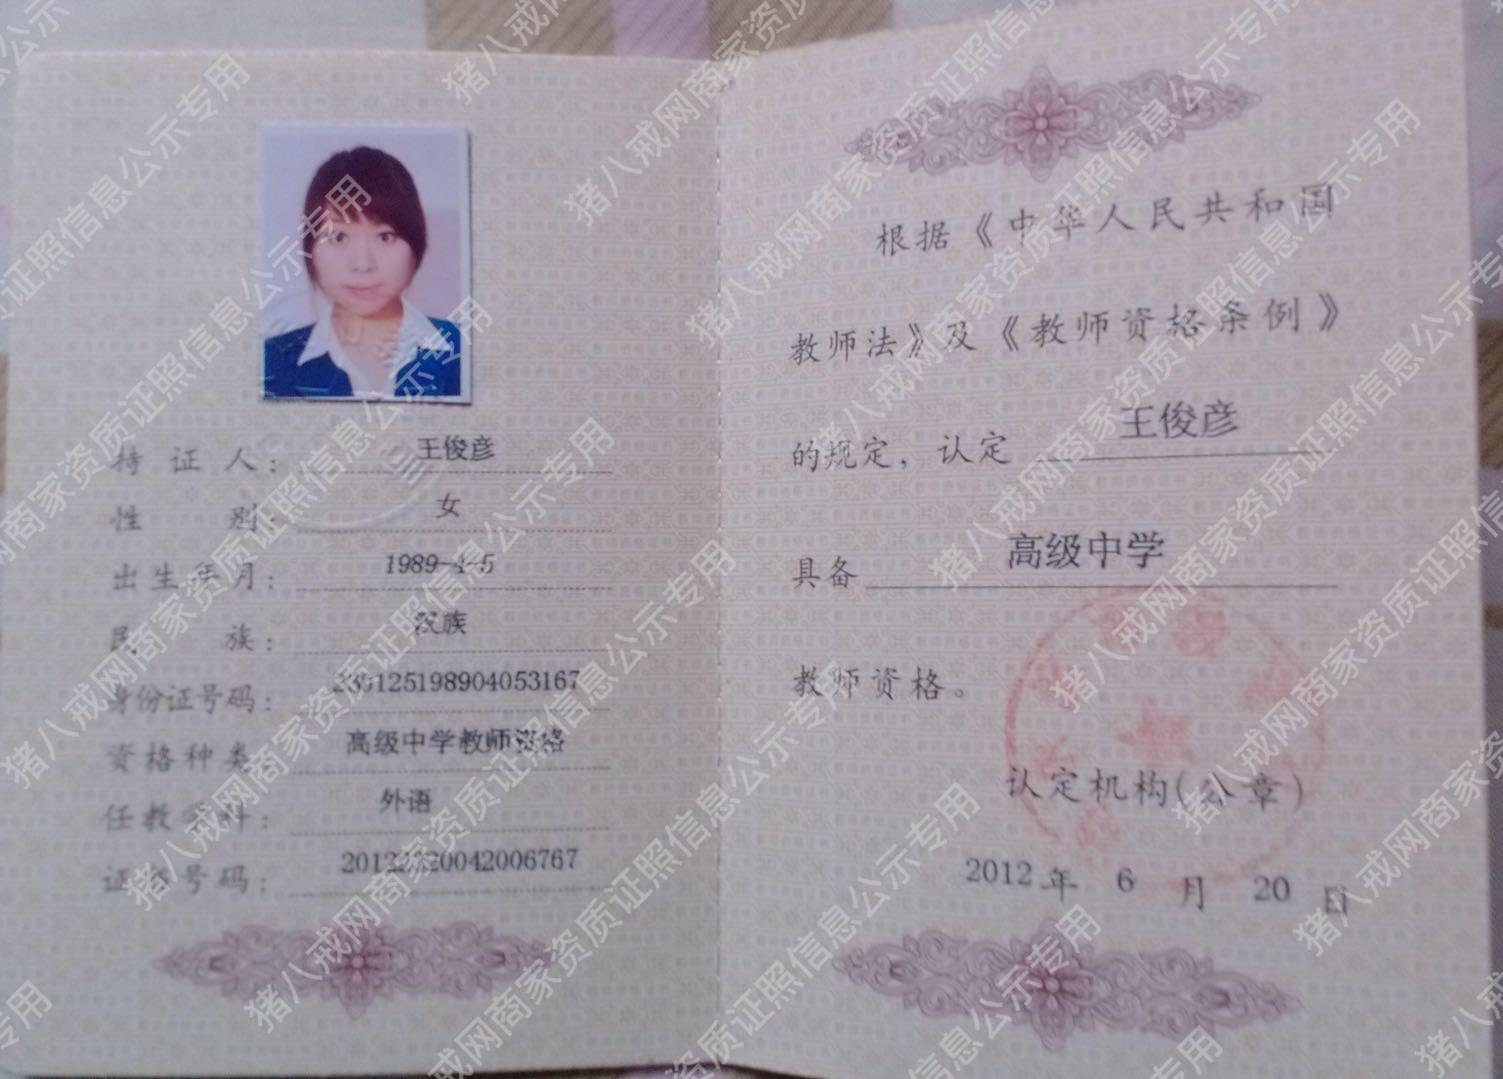 持证人：王俊彦
性别：女
出生年月：1989-4-5
民族：汉族
身份证号码：230125198904053167
资格种类：高级中学教师资格
任教学科：外语
证书号码：20122320042006767
根据《中华人民共和国
教师法》及《教师资格条例》
的规定，认定 王俊彦
具备 高级中学
教师资格。
认定机构(公章)
2012年 6 月 20 日
猪八戒网商家资质证照信息公示专用